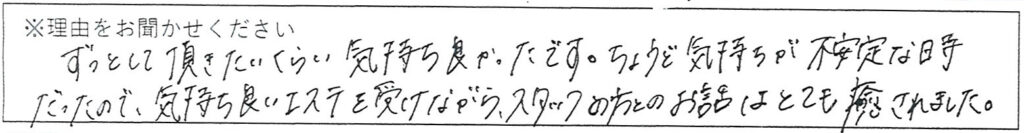 ※理由をお聞かせください
ずっとして頂きたいくらい気持ち良かったです。ちょうど気持ちが不安定な時
だったので、気持ち良いエステを受けながら、スタッフの方とのお話はとても癒されました。